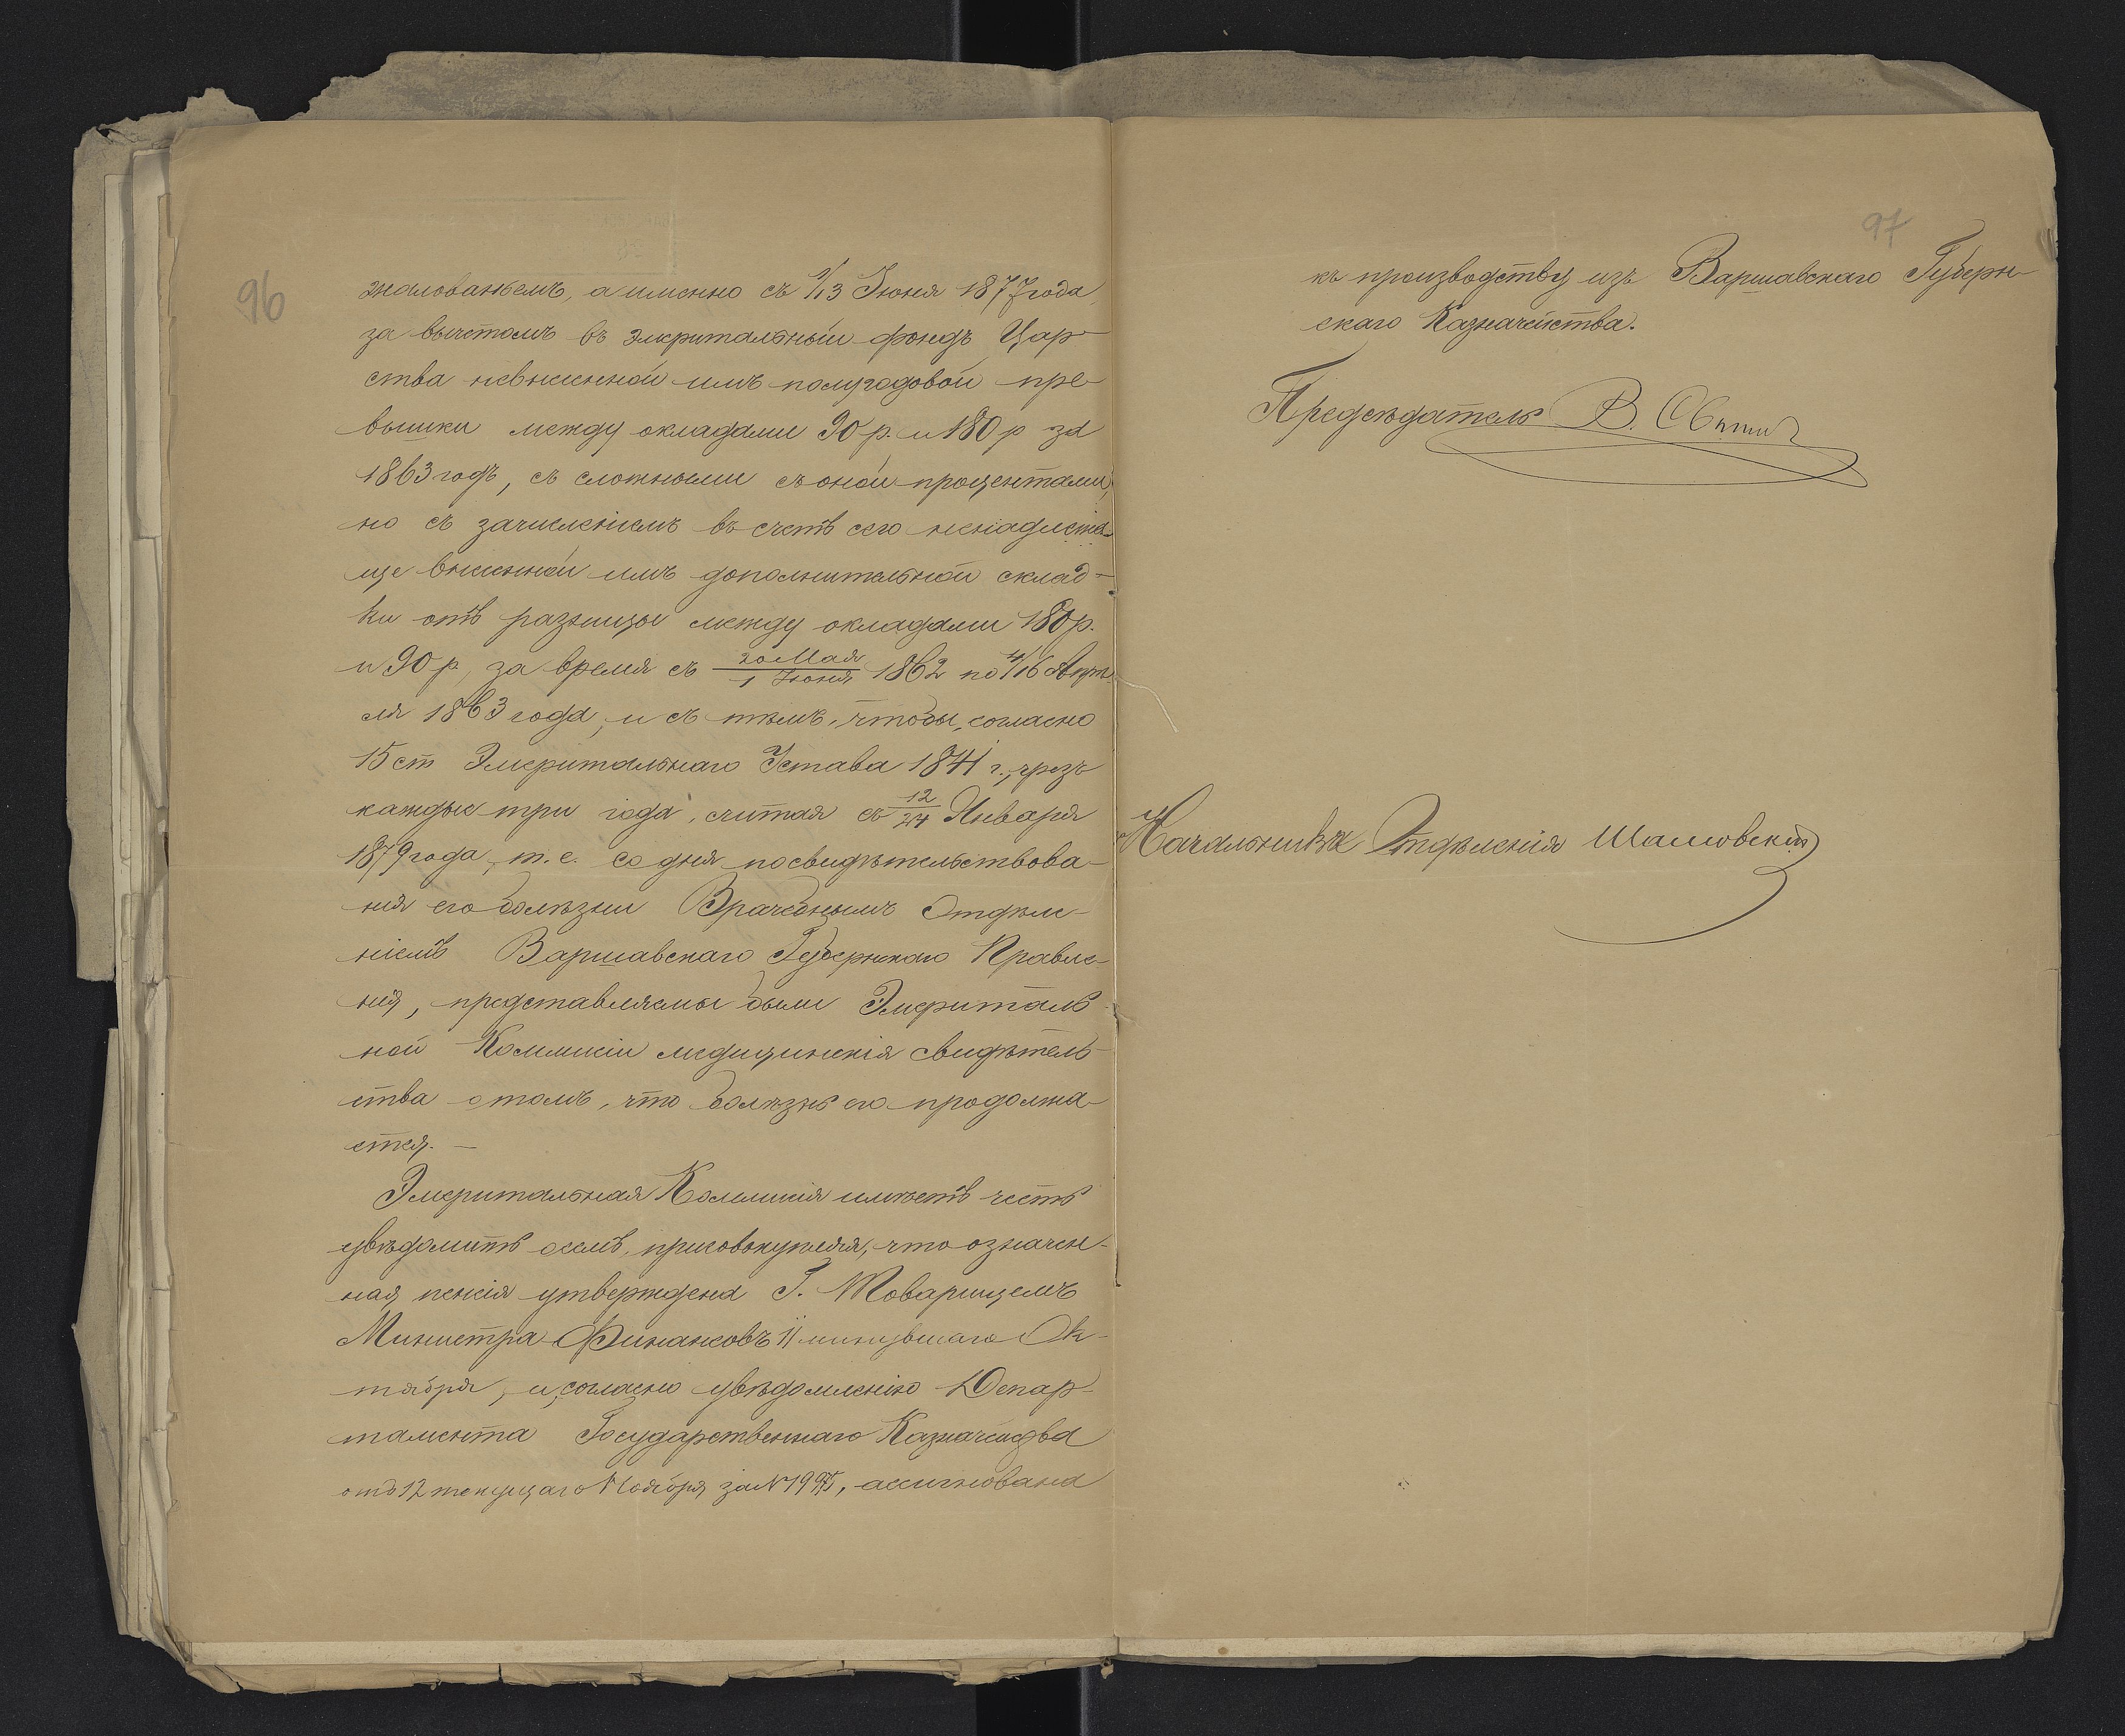 96
жалованьемъ, а именно съ 1/13 Іюня 1877 года,
за вычетомъ въ эмеритальный фондъ Цар-
ства невнесенной имъ полугодовой пре-
вышки между окладами 90 р. и 180 р за
1863 годъ, съ сложными съ оной процентами,
но съ зачисленіемъ въ счетъ сего ненадлежа-
ще внесенной имъ дополнительной склад-
ки отъ разницы между окладами 180 р.
и 90 р, за время съ 20 Мая/1 Іюня 1862 по 4/16 Апрѣ-
ля 1863 года, и съ тѣмъ, чтобы, согласно
15 ст Эмеритальнаго Устава 1841 г., чрезъ
каждые три года, считая съ 12/24 Января
1879 года, т. е. со дня посвидѣтельствова-
нія его болѣзни Врачебнымъ Отдѣле-
ніемъ Варшавскаго Губернскаго Правле-
нія, представляемы были Эмериталь-
ной Коммисіи медицинскія свидѣтель-
ства о томъ, что болѣзнь его продолжа-
ется. —
Эмеритальная Коммисія имѣетъ честь
увѣдомить о семъ, присовокупляя, что означен-
ная пенсія утверждена Г. Товарищемъ
Министра Финансовъ 11 минувшаго Ок-
тября, и, согласно увѣдомленію Депар-
тамента Государственнаго Казначейства
отъ 12 текущаго Ноября за № ассигнована
97
къ производству изъ Варшавскаго Губерн-
скаго Казначейства.
Предсѣдатель В.
Начальникъ Отдѣленія Шамовскій